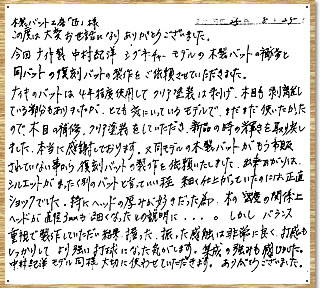 木製バット工房 様
この度は大変お世話になりありがとうございました。
今回ナイキ製 中村紀洋シグネチャーモデルの木製バットの補修と
同バットの復刻バットの製作をご依頼させていただきました。
ナイキのバットは4年程度使用してクリア塗装は剥げ、木目も剥離し
ている部分もありましたが、とても気にいっているモデルで、まだまだ使いたかった
ので、木目の補修、クリア塗装をしていただき、新品の時の輝きを取り戻し
ました。本当に感謝しております。又同モデルの木製バットがもう市販
されていない事から復刻バットの製作を依頼いたしました。出来上がりは、
シルエットがまたく別のバットと言っていい程 細く仕上がっていたのには正直
ショックでした。特にヘッドの厚みが好きだった為、木の密度の関係上
ヘッドが直径3mmも細くなったとの説明に・・・。しかしバランス
重視で製作していただいた結果、握った、振った感触は非常に良く、打感も
しっかりして より強い打球になった気がします。集成の強みも感じました。
中村紀洋モデル同様 大切に使わせていただきます。ありがとうございました。